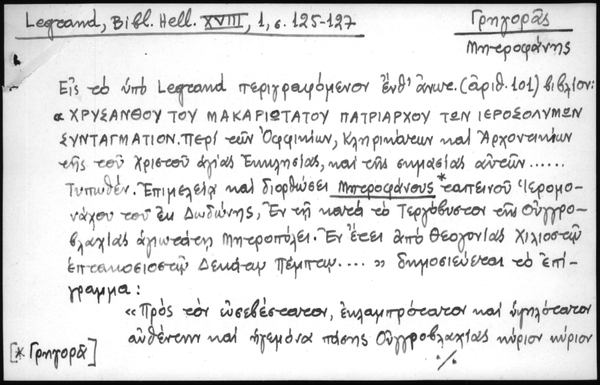 Legrand, Bibl. Hell. XVIII, 1, σ. 125-127
Γρηγορᾶς
Μητροφάνης
Εἰς τὸ ὑπὸ Legrand περιγραφόμενον ἔνθ' ἄνωτ. (ἀριθ. 101) βιβλίον:
« ΧΡΥΣΑΝΘΟΥ ΤΟΥ ΜΑΚΑΡΙΩΤΑΤΟΥ ΠΑΤΡΙΑΡΧΟΥ ΤΩΝ ΙΕΡΟΣΟΛΥΜΩΝ
ΣΥΝΤΑΓΜΑΤΙΟΝ. Περὶ τῶν Ὀφφικίων, Κληρικάτων καὶ Ἀρχοντικίων
τῆς τοῦ Χριστοῦ ἁγίας Ἐκκλησίας, καὶ τῆς σημασίας αὐτῶν ......
Τυπωθέν. Ἐπιμελείᾳ καὶ διορθώσει Μητροφάνους* ταπεινοῦ Ἱερομο-
νάχου τοῦ ἐκ Δωδώνης, Ἐν τῇ κατὰ τὸ Τεργόβυστον τῆς Οὐγγρο-
βλαχίας ἁγιωτάτῃ Μητροπόλει. Ἐν ἔτει ἀπὸ Θεογονίας Χιλιοστῷ
ἑπτακοσιοστῷ Δεκάτῳ Πέμπτῳ.... » δημοσιεύεται τὸ ἐπί-
γραμμα:
«Πρὸς τὸν εὐσεβέστατον, ἐκλαμπρότατον καὶ ὑψηλότατον
αὐθέντην καὶ ἡγεμόνα πάσης Οὐγγροβλαχίας κύριον κύριον
[* Γρηγορᾶ]
./.